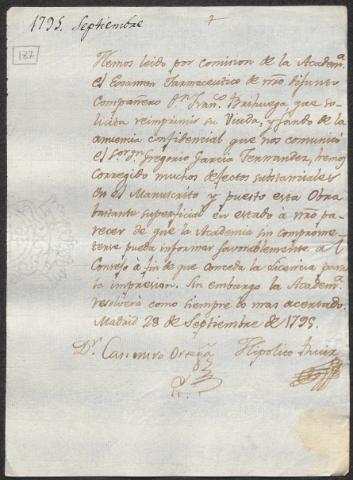 1795. Septiembre
187
Hemos leido por comision de la Academ.ª
el Examen Farmaceutico de nro difunto
Compañero Dn. Fran.co Brihuega, que so-
licita reimprimir su Viuda, y usando de la
anuencia confidencial que nos comunicó
el Sor. Dn. Gregorio Garcia Fernandez, hemos
Corregido muchos defectos substanciales
en el Manuscrito y puesto esta Obra
bastante superficial en estado á nro pa-
recer de que la Academia sin comprome-
terse pueda informar favorablemente a l
Consejo á fin de que conceda la licencia para
la impresion. Sin embargo la Academ.ª
resolverá como siempre lo mas acertado.
Madrid 28 de Septiembre de 1795.
Dr. Casimiro Ortega Hipolito Ruiz